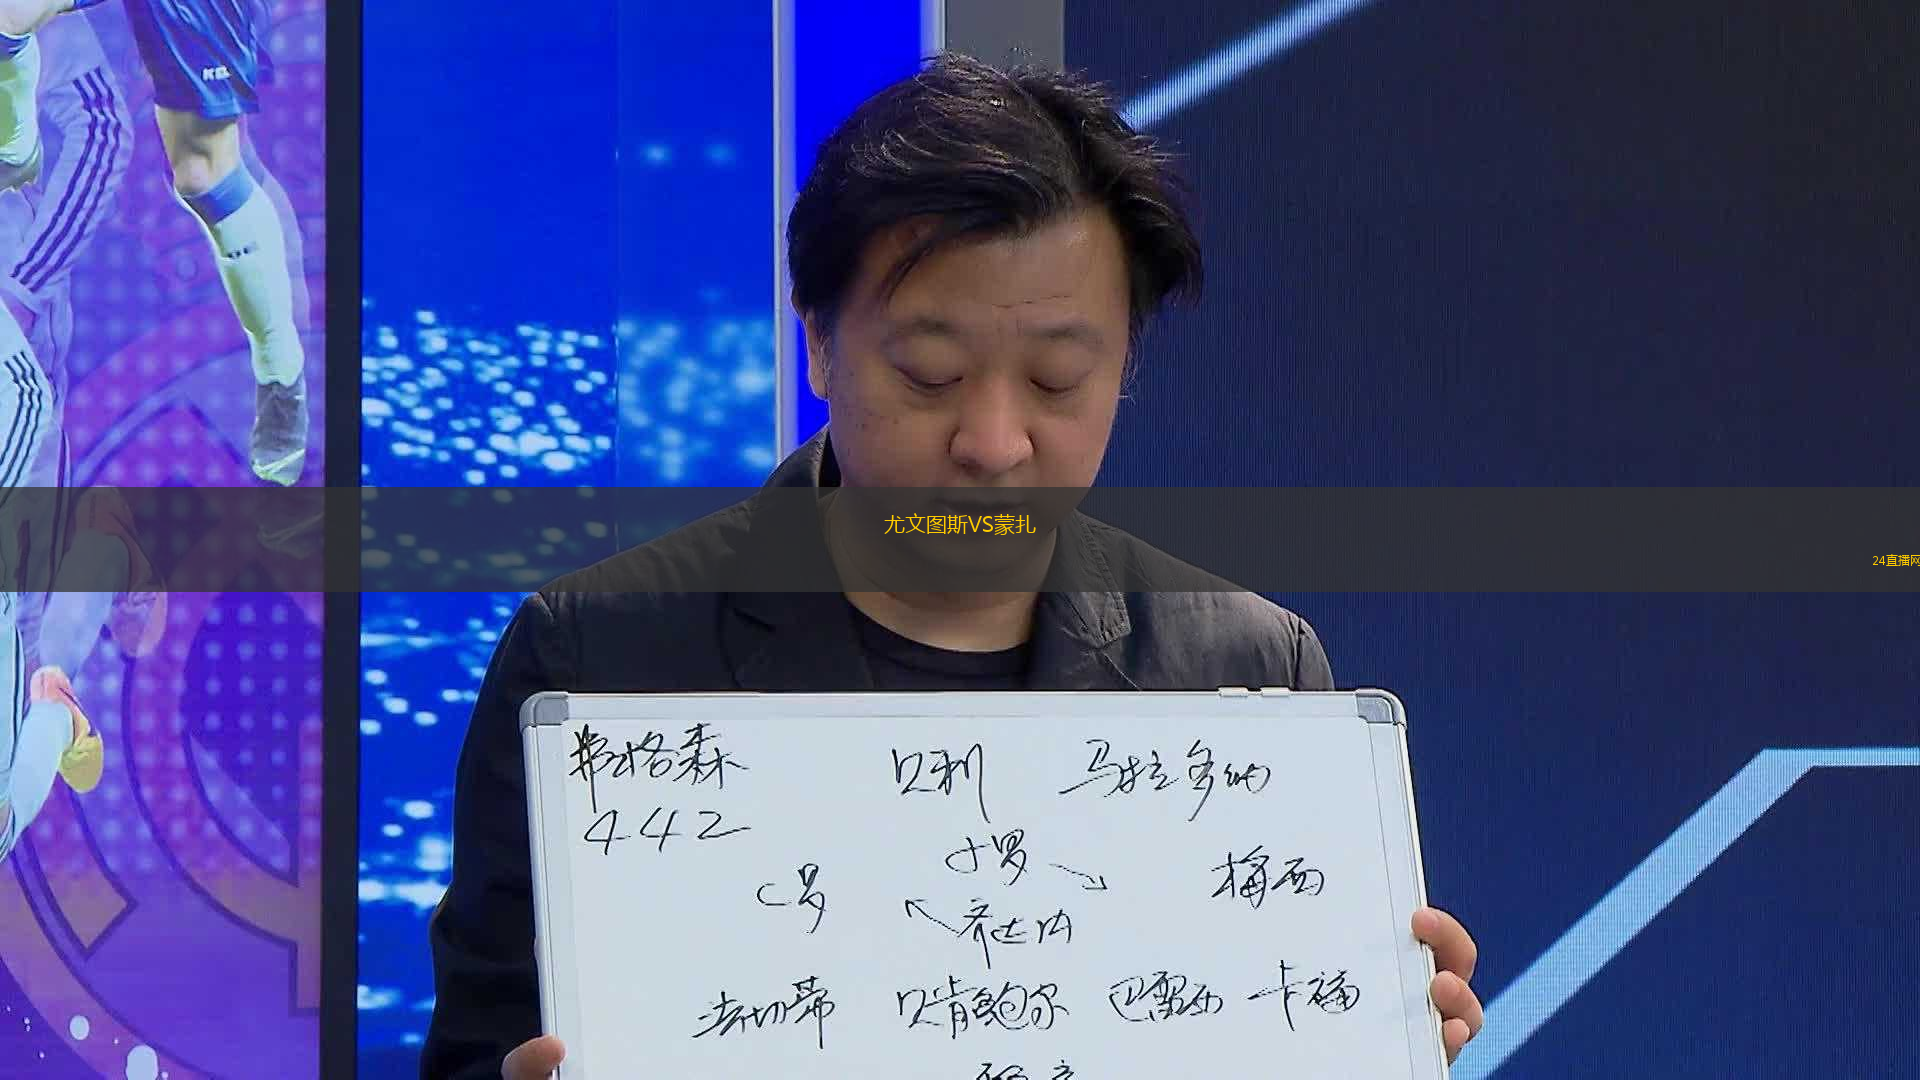 尤文图斯VS蒙扎
24直播网
弗格森 贝利 马拉多纳
442
小罗
C罗 梅西
齐达内
法切蒂 贝肯鲍尔 巴雷西 卡福